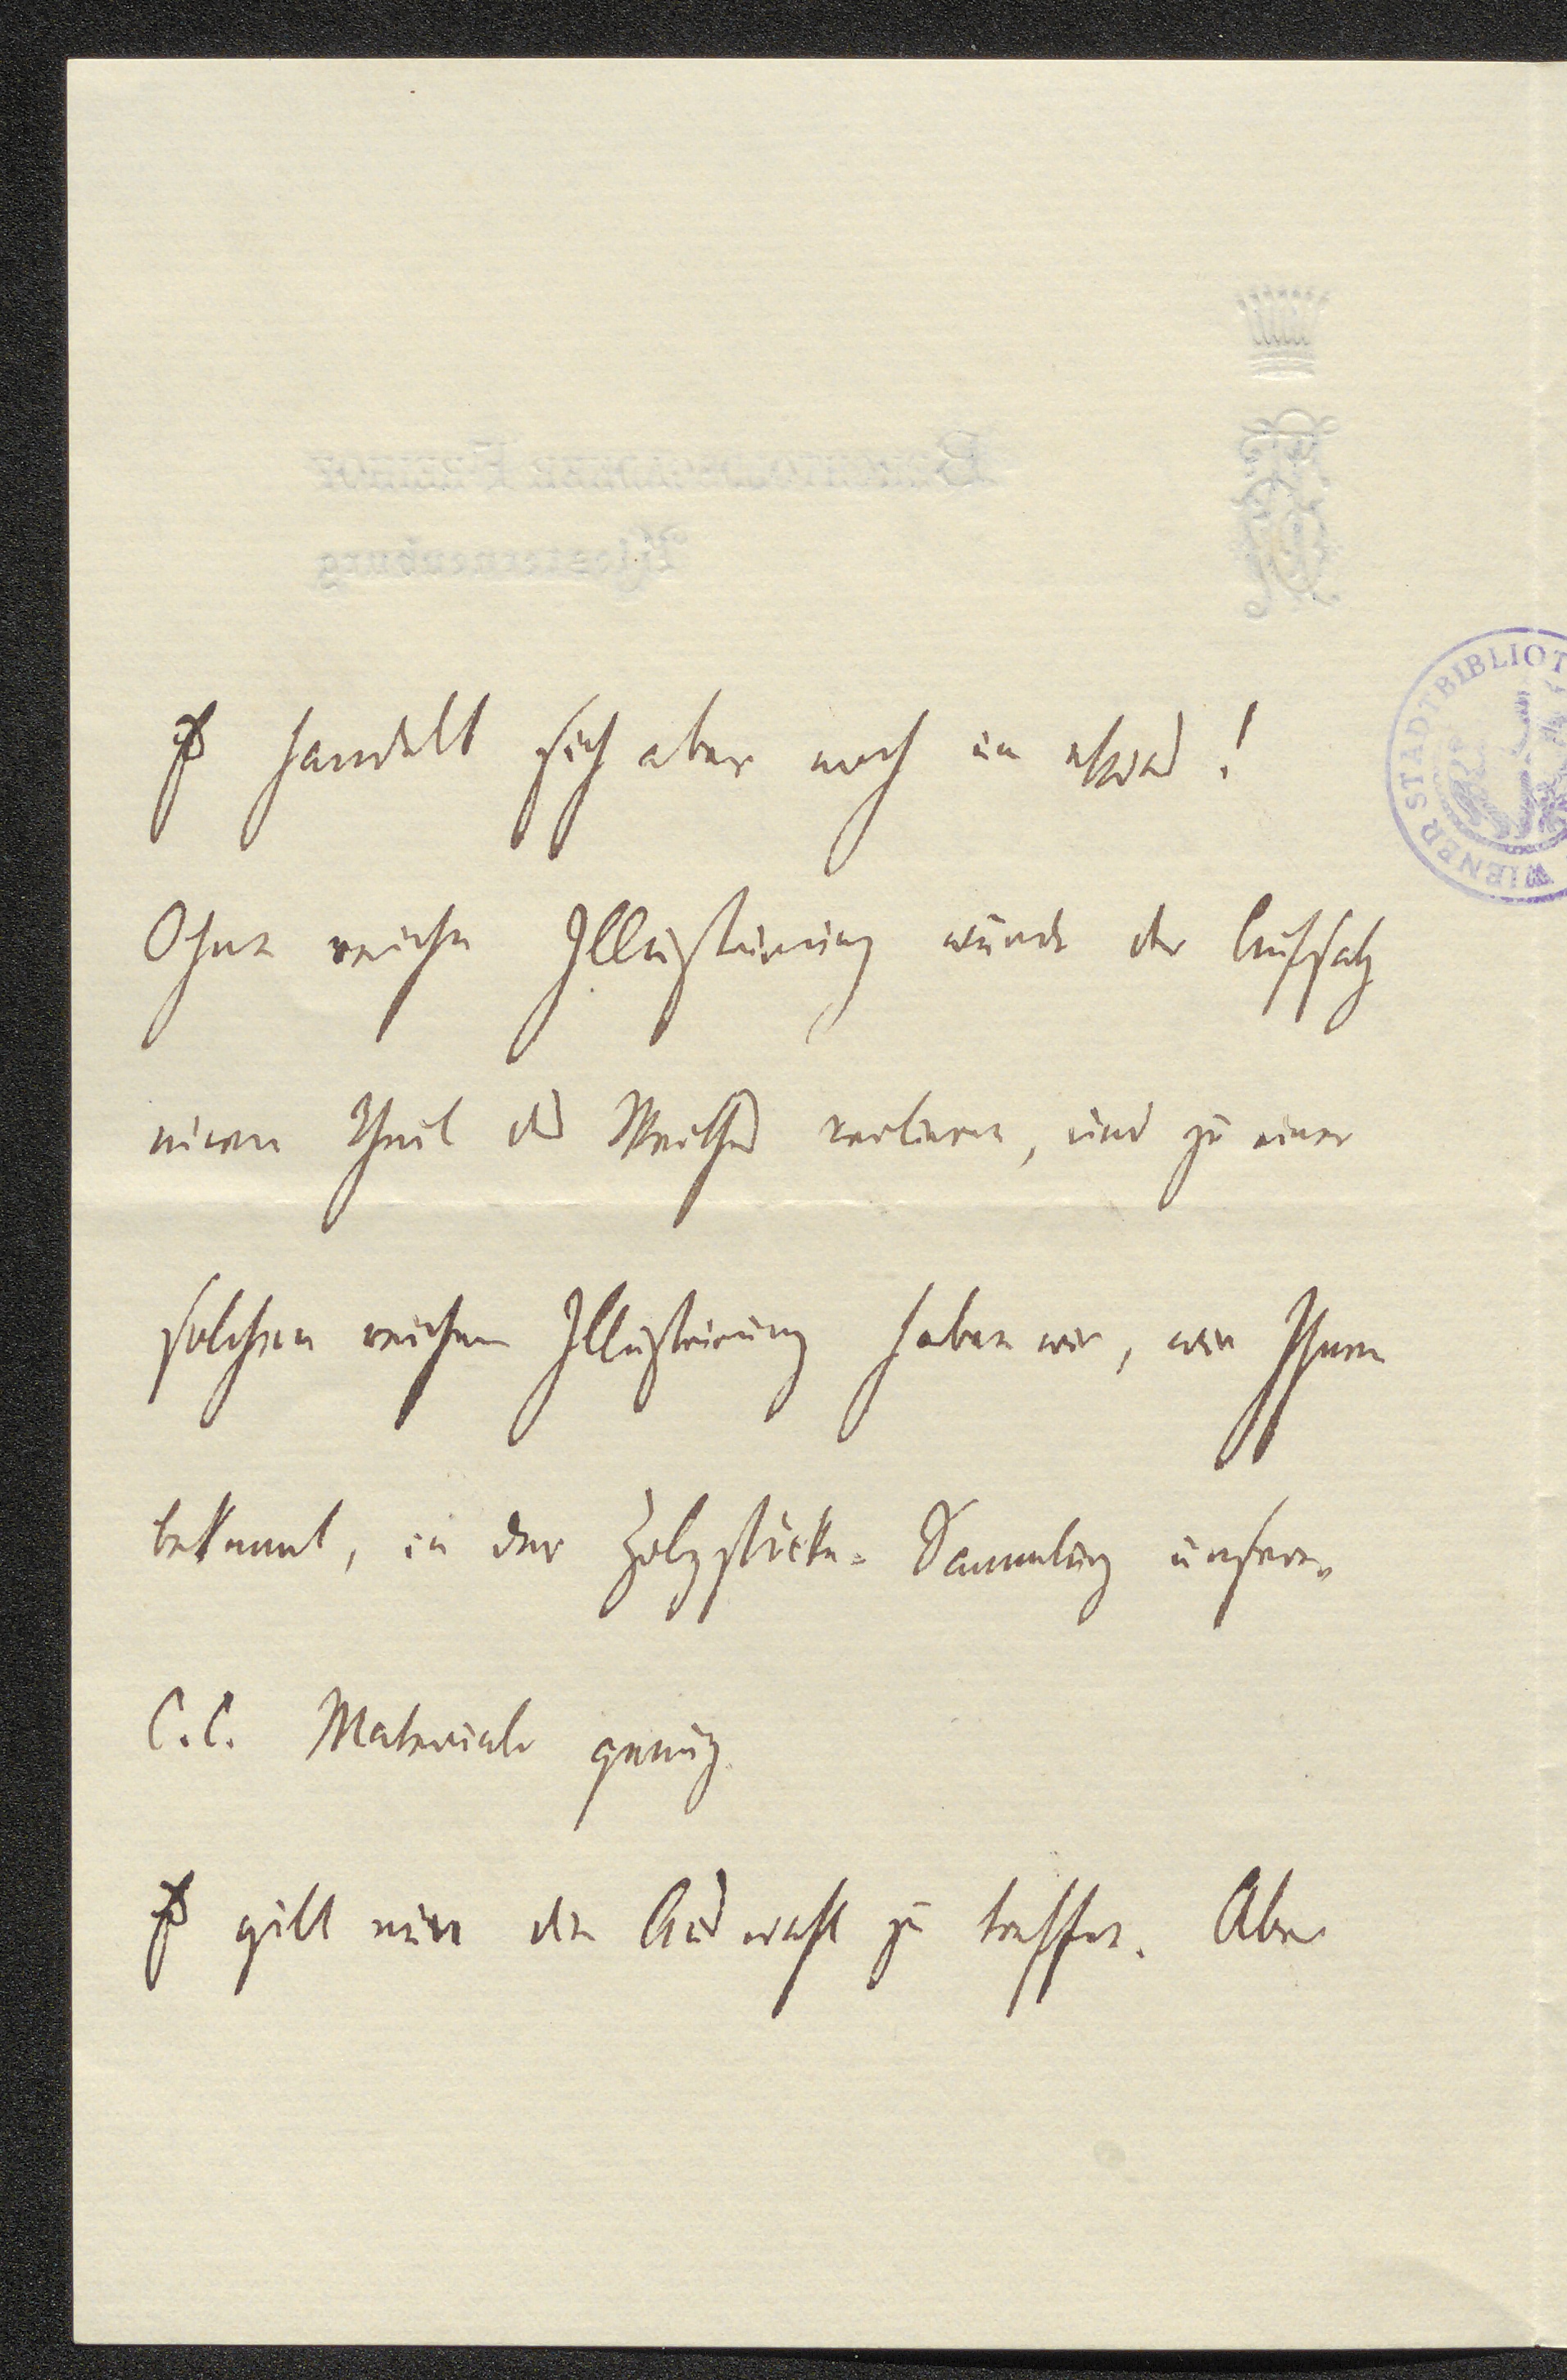 Es handelt sich aber noch um etwas!
Ohne reiche Illustrirung würde der Aufsatz
einen Theil des Werthes verlieren, und zu einer
solchen reichen Illustrirung haben wir, wie Ihnen
bekannt, in der Holzstöcke-Sammlung unserer
C.C. Materiale genug.
Es gilt nun die Auswahl zu treffen. Aber
BERCHTOLDSGADNER FREIHOF
Klosterneuburg
WIENER STADTBIBLIOT